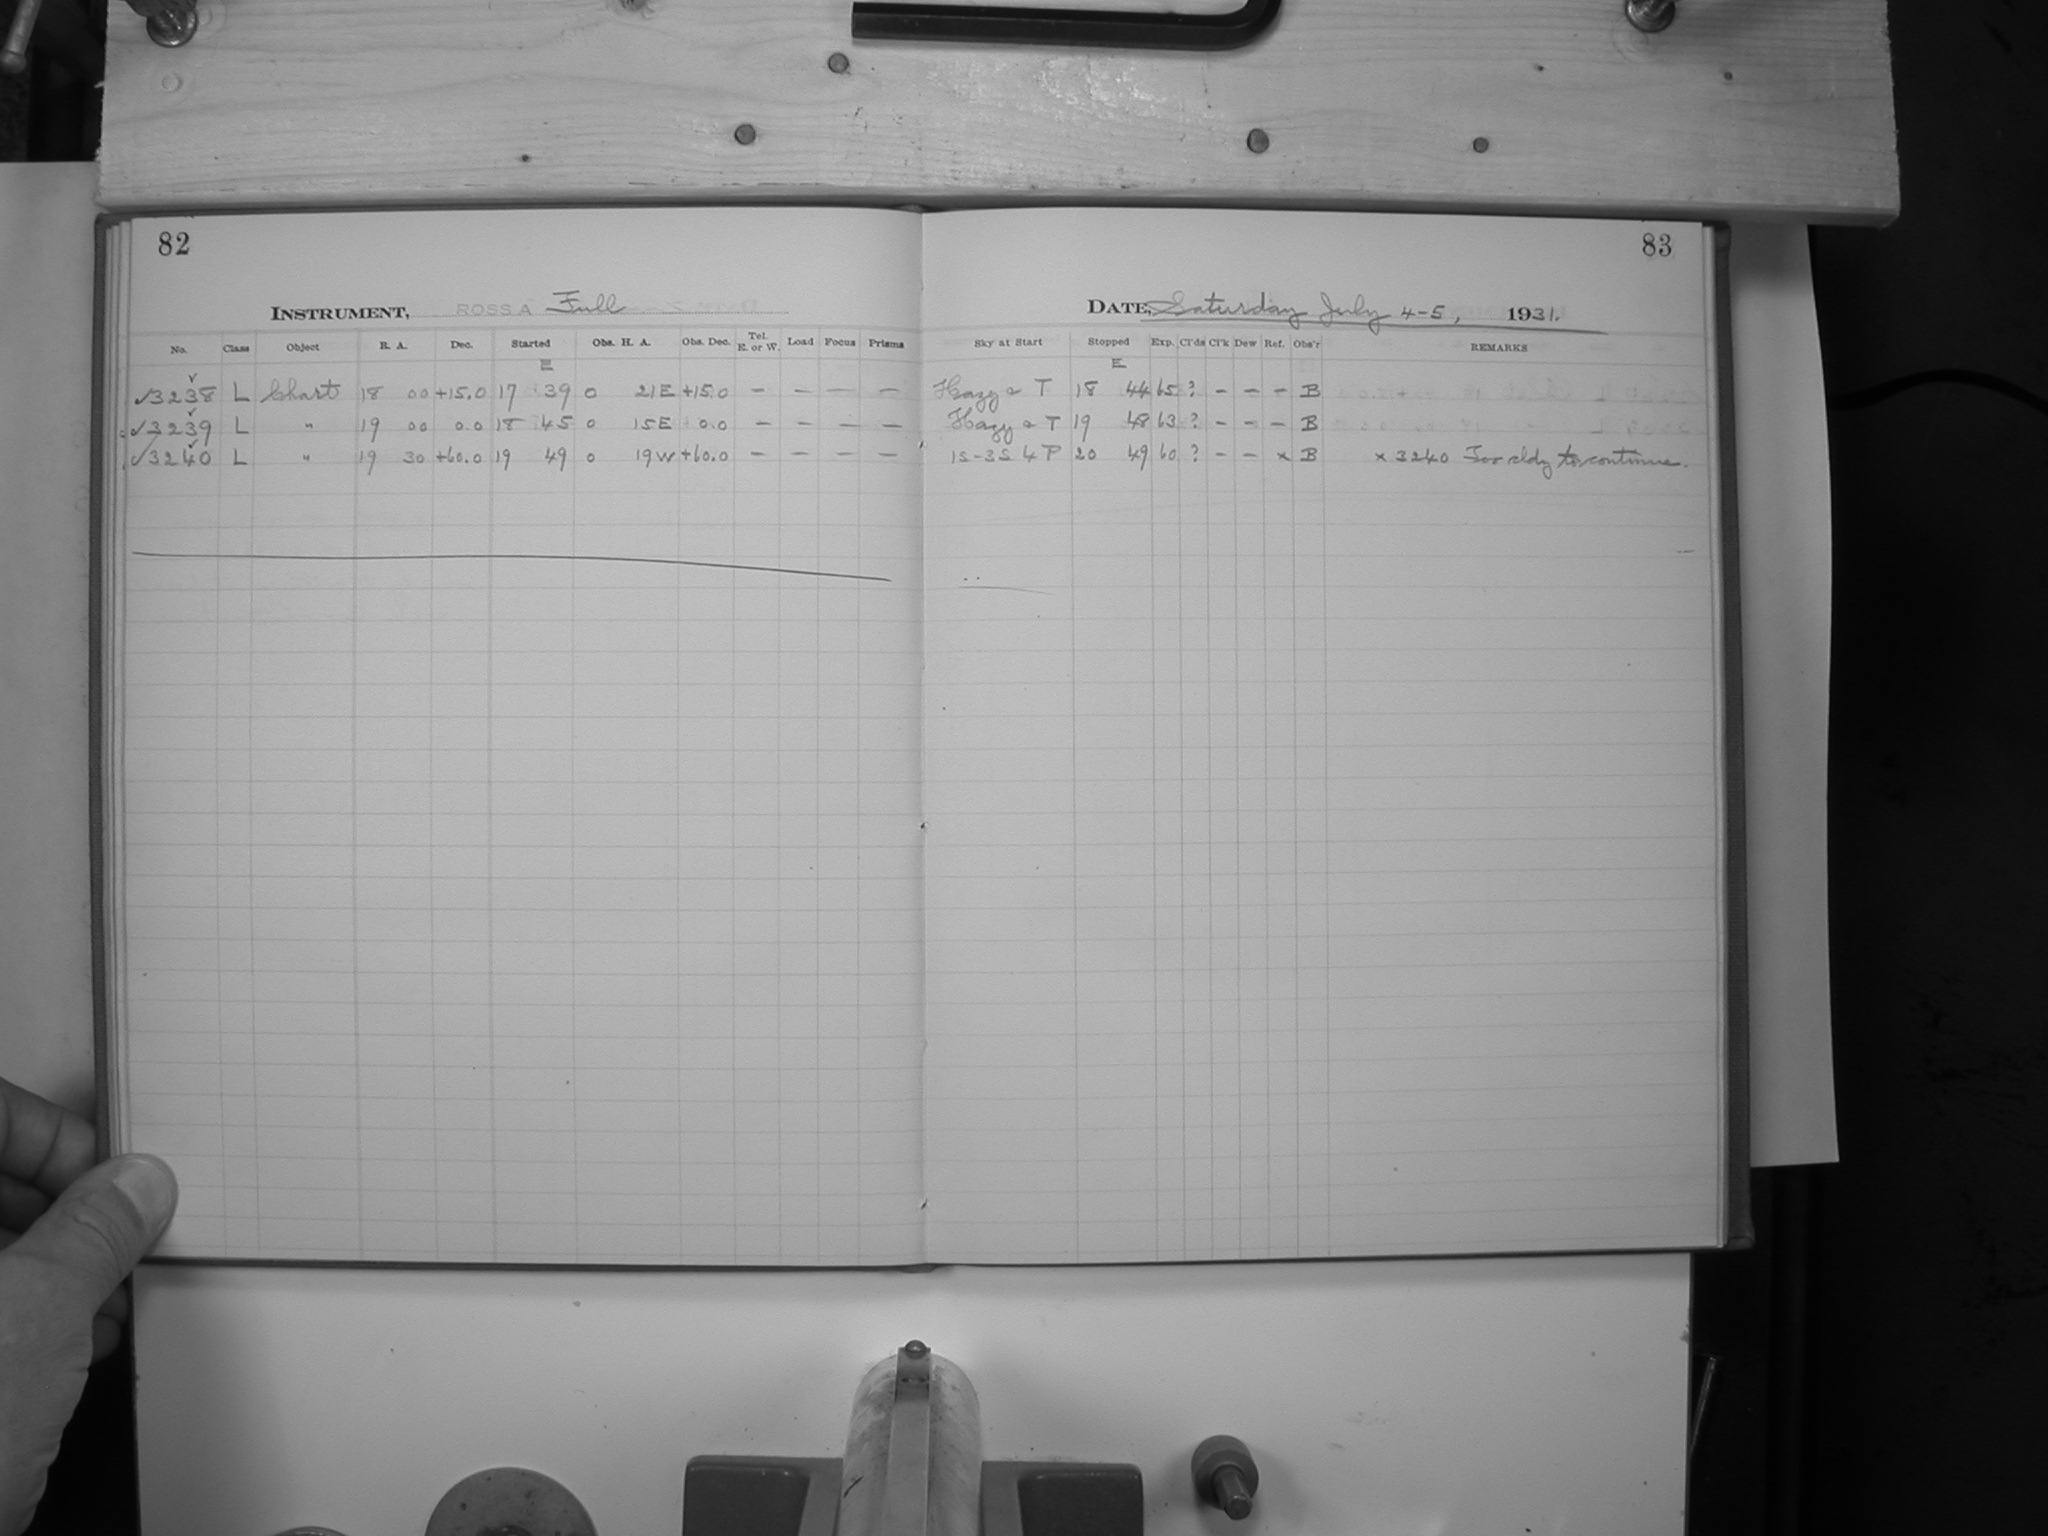 82
INSTRUMENT, ROSS A Full
No. Class Object R. A. Dec. Started Obs. H. A. Obs. Dec. Tel. E. or W. Load Focus Prisms
E
✓3238 L Chart 18 00 +15.0 17 39 0 21E +15.0 – – – –
✓3239 L " 19 00 0.0 18 45 0 15E 0.0 – – – –
✓3240 L " 19 30 +60.0 19 49 0 19W +60.0 – – – –
83
DATE, Saturday July 4-5, 1931.
Sky at Start Stopped Exp. Cl'ds Cl'k Dew Ref. Obs'r REMARKS
E
Hazy & T 18 44 65 ? – – – B
Hazy & T 19 48 63 ? – – – B
1S-3S 4 P 20 49 60 ? – – × B × 3240 Too cldy to continue.